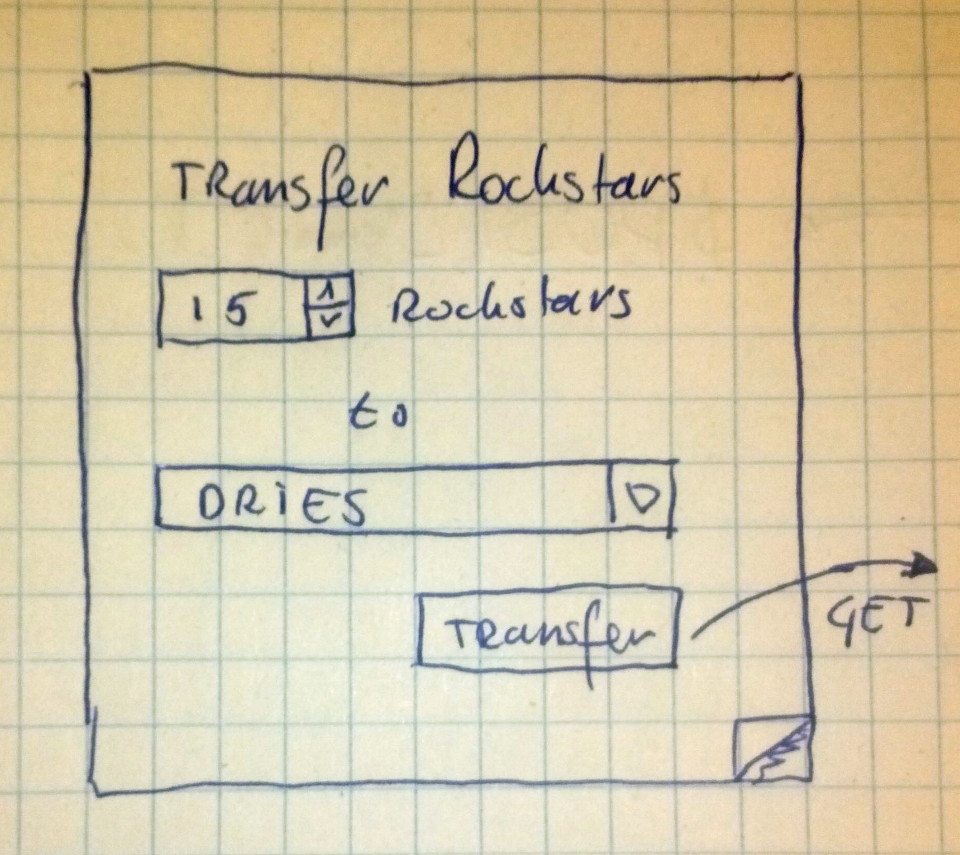 Transfer Rockstars
15 Rockstars
to
DRiES
Transfer
GET